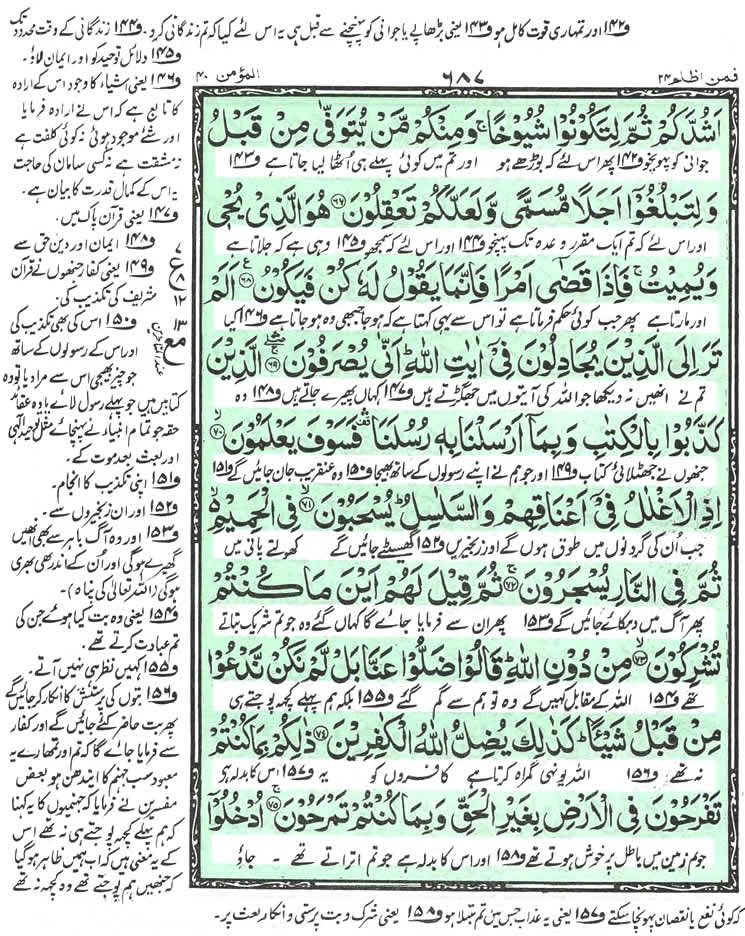 و۱۴۲ اور تمہاری قوت کامل ہو و۱۴۳ یعنی بڑھاپے یا جوانی کو پہنچنے سے قبل ہی یہ اس لئے کیا کہ تم زندگانی کرو۔ و۱۴۴ زندگانی کے وقت محدود تک
فمن اظلم ۲۴
۶۸۷
المؤمن ۴۰
اَشُدَّكُمْ ثُمَّ لِتَكُوْنُوْا شُيُوْخًا ۚ وَمِنْكُمْ مَّنْ يُّتَوَفّٰى مِنْ قَبْلُ
جوانی کو پہونچو و۱۴۲ پھر اس لئے کہ بوڑھے ہو اور تم میں کوئی پہلے ہی اٹھا لیا جاتا ہے و۱۴۳
وَلِتَبْلُغُوْۤا اَجَلًا مُّسَمًّى وَّلَعَلَّكُمْ تَعْقِلُوْنَ ۶۷ هُوَ الَّذِيْ يُحْيٖ
اور اس لئے کہ تم ایک مقرر وعدہ تک پہنچو و۱۴۴ اور اس لئے کہ سمجھو و۱۴۵ وہی ہے کہ جلاتا ہے
وَيُمِيْتُ ۚ فَاِذَا قَضٰۤى اَمْرًا فَاِنَّمَا يَقُوْلُ لَهٗ كُنْ فَيَكُوْنُ ۶۸ اَلَمْ
اور مارتا ہے پھر جب کوئی حکم فرماتا ہے تو اس سے یہی کہتا ہے کہ ہو جا جبھی وہ ہو جاتا ہے و۱۴۶ کیا
تَرَ اِلَى الَّذِيْنَ يُجَادِلُوْنَ فِيْۤ اٰيٰتِ اللّٰهِ ؕ اَنّٰى يُصْرَفُوْنَ ۶۹ الَّذِيْنَ
تم نے انھیں نہ دیکھا جو اللہ کی آیتوں میں جھگڑتے ہیں و۱۴۷ کہاں پھیرے جاتے ہیں و۱۴۸ وہ
كَذَّبُوْا بِالْكِتٰبِ وَبِمَاۤ اَرْسَلْنَا بِهٖ رُسُلَنَا ۛ فَسَوْفَ يَعْلَمُوْنَ ۷۰
جنھوں نے جھٹلائی کتاب و۱۴۹ اور جو ہم نے اپنے رسولوں کے ساتھ بھیجا و۱۵۰ وہ عنقریب جان جائیں گے و۱۵۱
اِذِ الْاَغْلٰلُ فِيْۤ اَعْنَاقِهِمْ وَالسَّلٰسِلُ ؕ يُسْحَبُوْنَ ۷۱ فِي الْحَمِيْمِ
جب ان کی گردنوں میں طوق ہوں گے اور زنجیریں و۱۵۲ گھسیٹے جائیں گے کھولتے پانی میں
ثُمَّ فِي النَّارِ يُسْجَرُوْنَ ۷۲ ثُمَّ قِيْلَ لَهُمْ اَيْنَ مَا كُنْتُمْ
پھر آگ میں دہکائے جائیں گے و۱۵۳ پھر ان سے فرمایا جائے گا کہاں گئے وہ جو تم شریک بتاتے
تُشْرِكُوْنَ ۷۳ مِنْ دُوْنِ اللّٰهِ ؕ قَالُوْا ضَلُّوْا عَنَّا بَلْ لَّمْ نَكُنْ نَّدْعُوْا
تھے و۱۵۴ اللہ کے مقابل کہیں گے وہ تو ہم سے گم گئے و۱۵۵ بلکہ ہم پہلے کچھ پوجتے ہی
مِنْ قَبْلُ شَيْـًٔا ؕ كَذٰلِكَ يُضِلُّ اللّٰهُ الْكٰفِرِيْنَ ۷۴ ذٰلِكُمْ بِمَا كُنْتُمْ
نہ تھے و۱۵۶ اللہ یونہی گمراہ کرتا ہے کافروں کو یہ و۱۵۷ اس کا بدلہ ہے
تَفْرَحُوْنَ فِي الْاَرْضِ بِغَيْرِ الْحَقِّ وَبِمَا كُنْتُمْ تَمْرَحُوْنَ ۷۵ اُدْخُلُوْۤا
جو تم زمین میں باطل پر خوش ہوتے تھے و۱۵۸ اور اس کا بدلہ ہے جو تم اتراتے تھے ۔ جاؤ
و۱۴۵ دلائل توحید کو اور ایمان لاؤ۔
و۱۴۶ یعنی اشیاء کا وجود اس کے ارادہ
کا تابع ہے کہ اس نے ارادہ فرمایا
اور شئے موجود ہوئی نہ کوئی کلفت ہے
نہ مشقت ہے نہ کسی سامان کی حاجت
یہ اس کے کمال قدرت کا بیان ہے۔
و۱۴۷ یعنی قرآن پاک میں۔
و۱۴۸ ایمان اور دین حق سے
و۱۴۹ یعنی کفار جنھوں نے قرآن
شریف کی تکذیب کی۔
و۱۵۰ اس کی بھی تکذیب کی
اور اس کے رسولوں کے ساتھ
جو چیز بھیجی اس سے مراد یا تو وہ
کتابیں ہیں جو پہلے رسول لائے یا وہ عقائد
حقہ جو تمام انبیاء نے پہنچائے مثل توحید الٰہی
اور بعث بعد موت کے۔
و۱۵۱ اپنی تکذیب کا انجام۔
و۱۵۲ اور ان زنجیروں سے۔
و۱۵۳ اور وہ آگ باہر سے بھی انھیں
گھیرے ہوگی اور ان کے اندر بھی بھری
ہوگی (اللہ تعالٰی کی پناہ)۔
و۱۵۴ یعنی وہ بت کیا ہوئے جن کی
تم عبادت کرتے تھے۔
و۱۵۵ کہیں نظر ہی نہیں آتے۔
و۱۵۶ بتوں کی پرستش کا انکار کر جائیں گے
پھر بت حاضر کئے جائیں گے اور کفار
سے فرمایا جائے گا کہ تم اور تمھارے یہ
معبود سب جہنم کا ایندھن ہو بعض
مفسرین نے فرمایا کہ جہنمیوں کا یہ کہنا
کہ ہم پہلے کچھ پوجتے ہی نہ تھے اس
کے یہ معنی ہیں کہ اب ہمیں ظاہر ہو گیا
کہ جنھیں ہم پوجتے تھے وہ کچھ نہ تھے
۷
ع
۸
۱۲
۱۳
مع
کہ کوئی نفع یا نقصان پہونچا سکتے و۱۵۷ یعنی یہ عذاب جس میں تم مبتلا ہو و۱۵۸ یعنی شرک و بت پرستی و انکار بعث پر۔